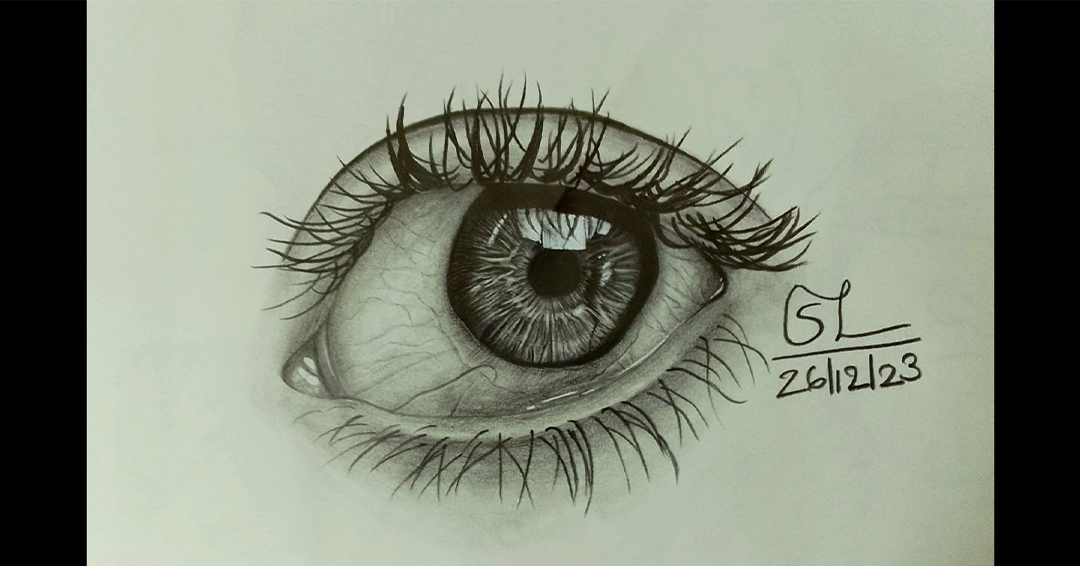 SL
26/12/23